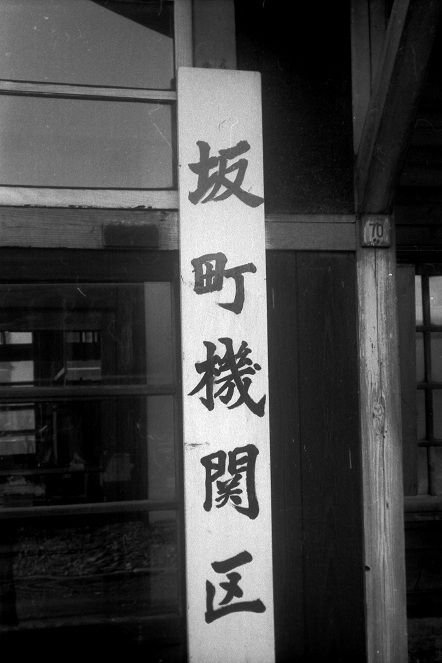 坂町機関区
70